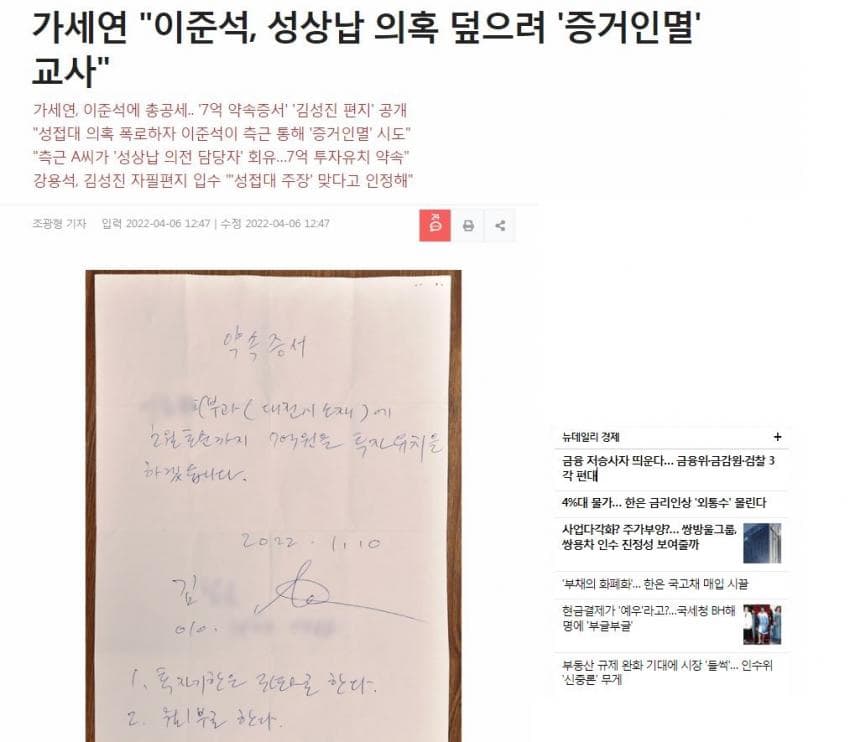 가세연 "이준석, 성상납 의혹 덮으려 '증거인멸'
교사"
가세연, 이준석에 총공세.. '7억 약속증서' '김성진 편지' 공개
"성접대 의혹 폭로하자 이준석이 측근 통해 '증거인멸' 시도"
"측근 A씨가 '성상납 의전 담당자' 회유...7억 투자유치 약속"
강용석, 김성진 자필편지 입수 "'성접대 주장' 맞다고 인정해"
조광형 기자 입력 2022-04-06 12:47 | 수정 2022-04-06 12:47
약속증서
피부과(대전시 소재)에
2월 초순까지 7억원을 투자유치를
하겠습니다.
2022. 1. 10
김
010.
1. 투자기한은 으로 한다.
2. 부로 한다.
뉴데일리 경제 +
금융 저승사자 띄운다... 금융위·금감원·검찰 3
각 편대
4%대 물가... 한은 금리인상 '외통수' 몰린다
사업다각화? 주가부양?... 쌍방울그룹,
쌍용차 인수 진정성 보여줄까
'부채의 화폐화'... 한은 국고채 매입 시끌
현금결제가 '예우'라고?...국세청 BH해
명에 '부글부글'
부동산 규제 완화 기대에 시장 '들썩'... 인수위
'신중론' 무게